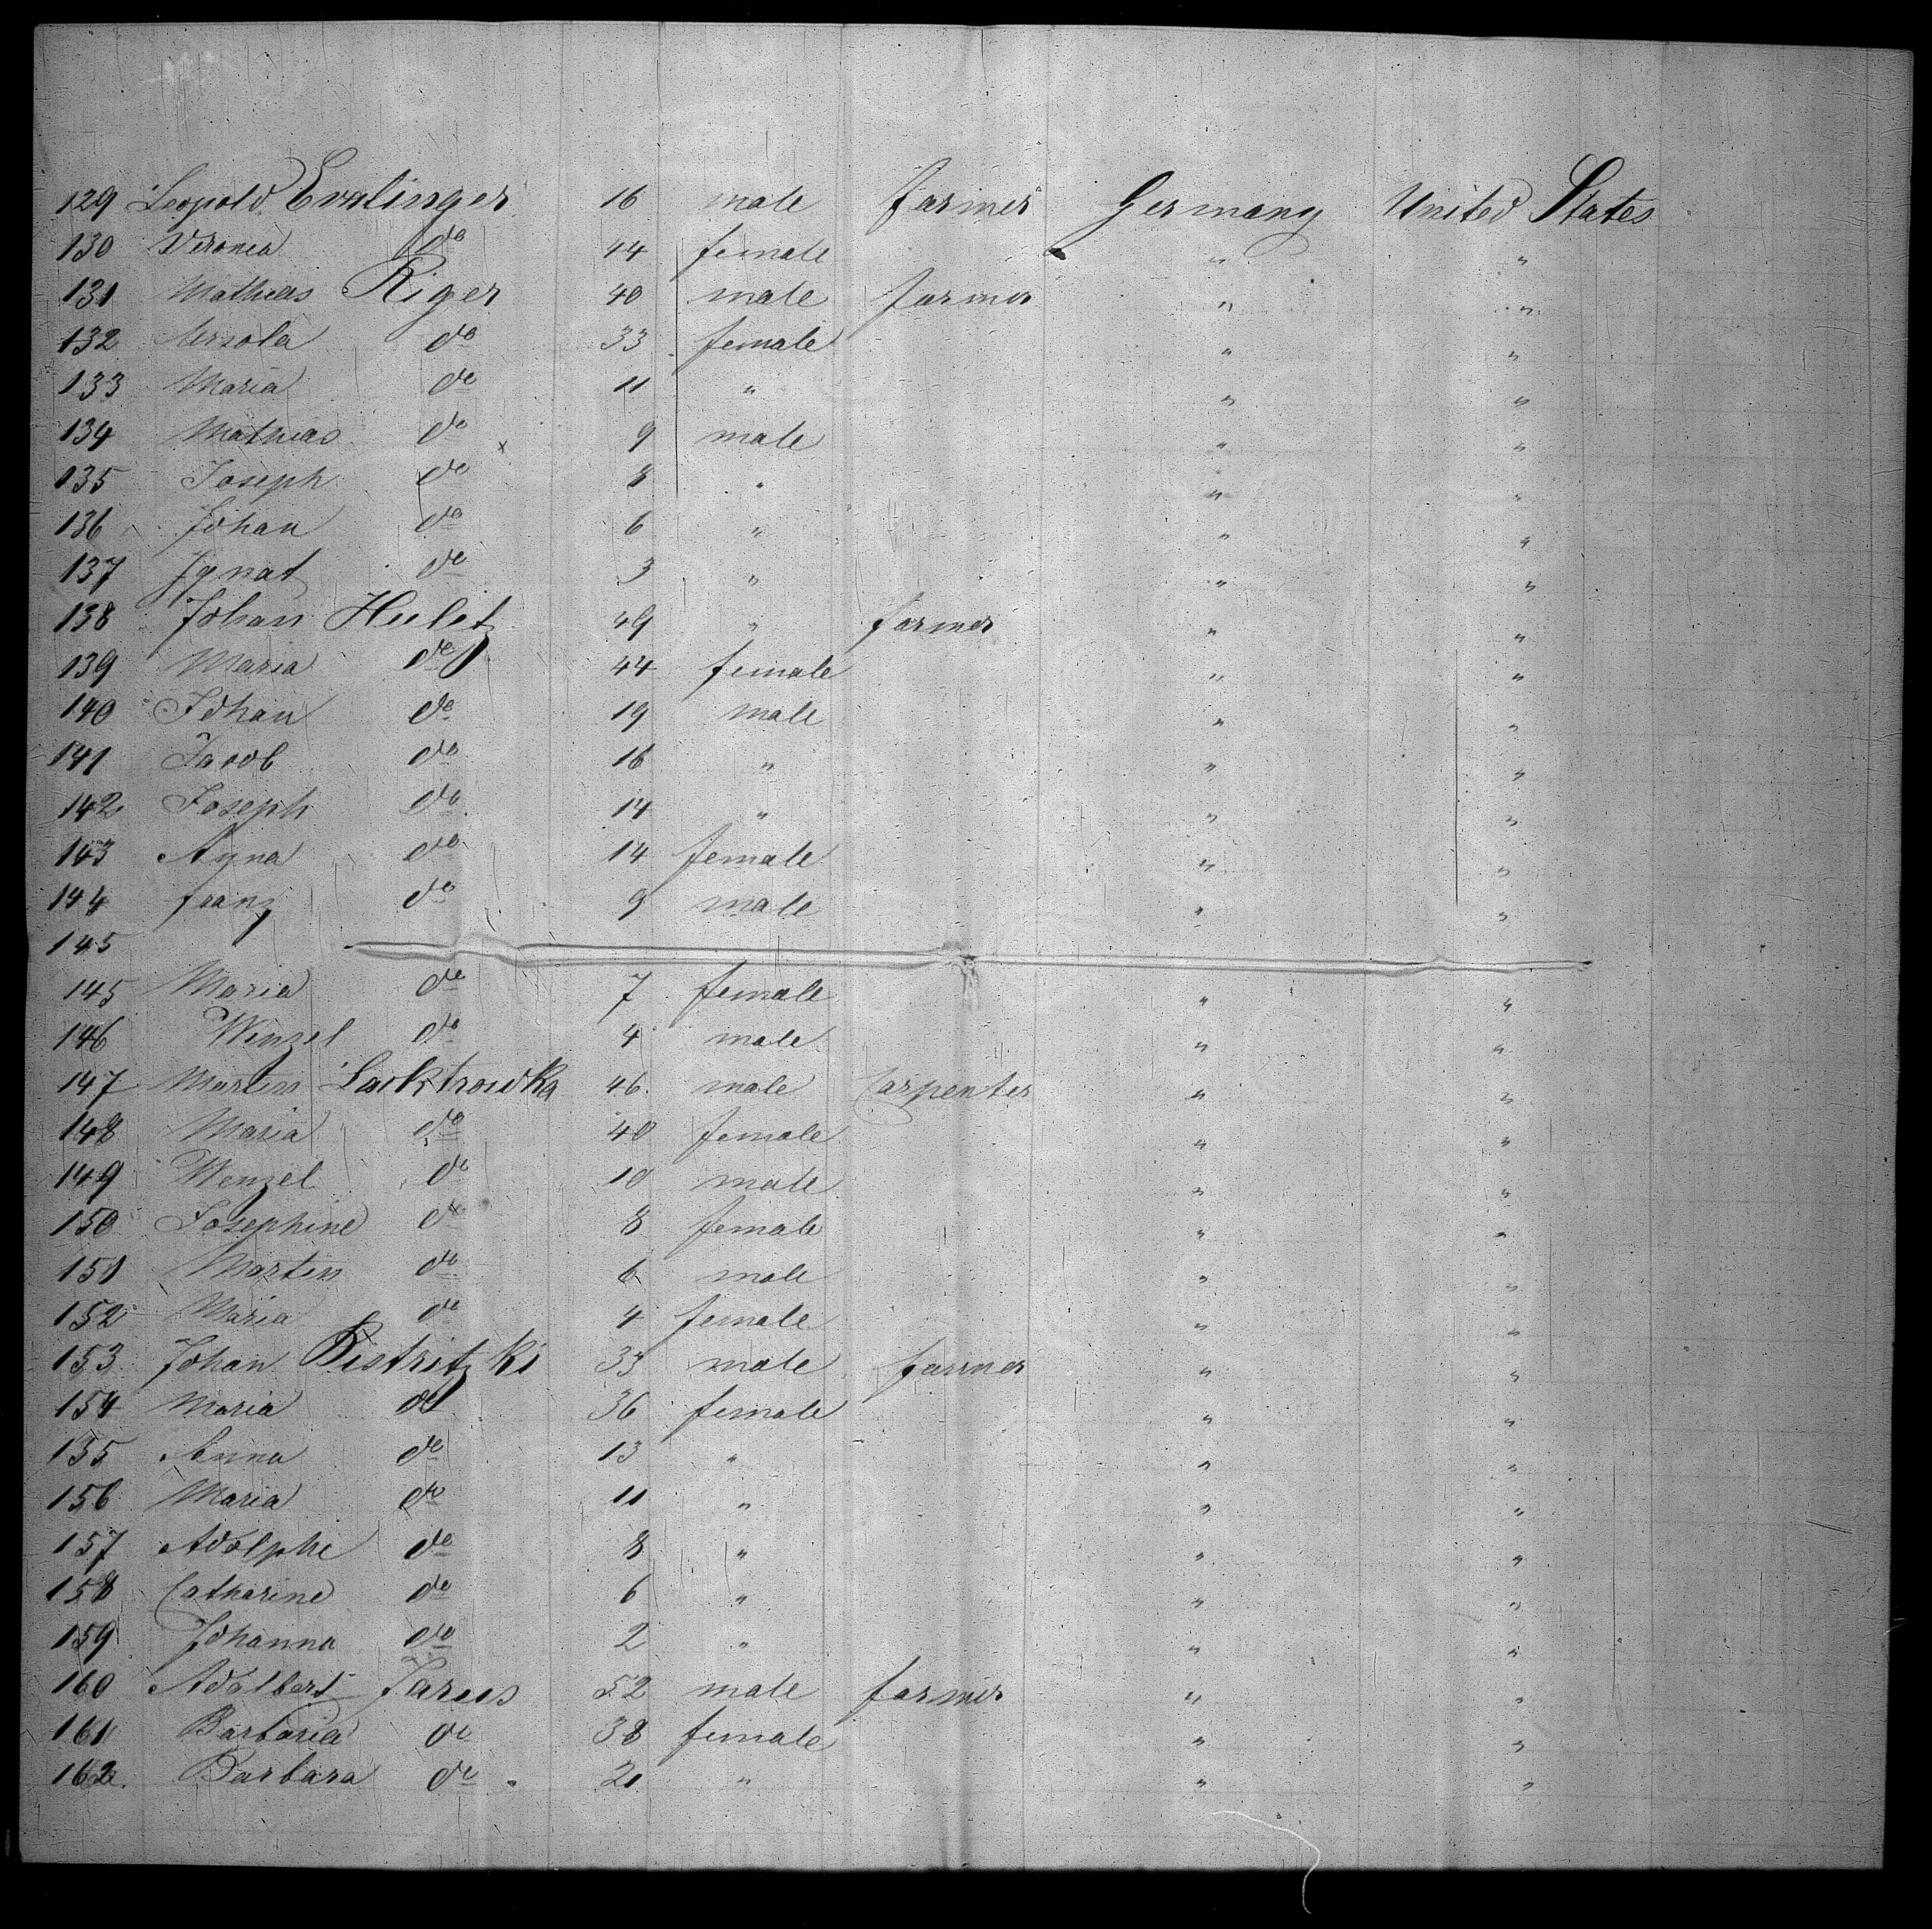 129 Leopold Evalinger 16 male farmer Germany United States
130 Veronica do 44 female " "
131 Mathias Riger 40 male farmer " "
132 Ursola do 33 female " "
133 Maria do 11 " " "
134 Mathias do 9 male " "
135 Joseph do 8 " " "
136 Johan do 6 " " "
137 Ignat do 3 " " "
138 Johan Huletz 49 " farmer " "
139 Maria do 44 female " "
140 Johan do 19 male " "
141 Jacob do 16 " " "
142 Joseph do 14 " " "
143 Anna do 14 female " "
144 franz do 9 male " "
145
145 Maria do 7 female " "
146 Wenzel do 4 male " "
147 Martin 46 male Carpenter " "
148 Maria do 40 female " "
149 Wenzel do 10 male " "
150 Josephine do 8 female " "
151 Martin do 6 male " "
152 Maria do 4 female " "
153 Johan Bistritzki 33 male farmer " "
154 Maria do 36 female " "
155 Anna do 13 " " "
156 Maria do 11 " " "
157 Adolphe do 8 " " "
158 Catharine do 6 " " "
159 Johanna do 2 " " "
160 Adalbert Jarus 52 male farmer " "
161 Barbaria do 38 female " "
162 Barbara do 21 " " "